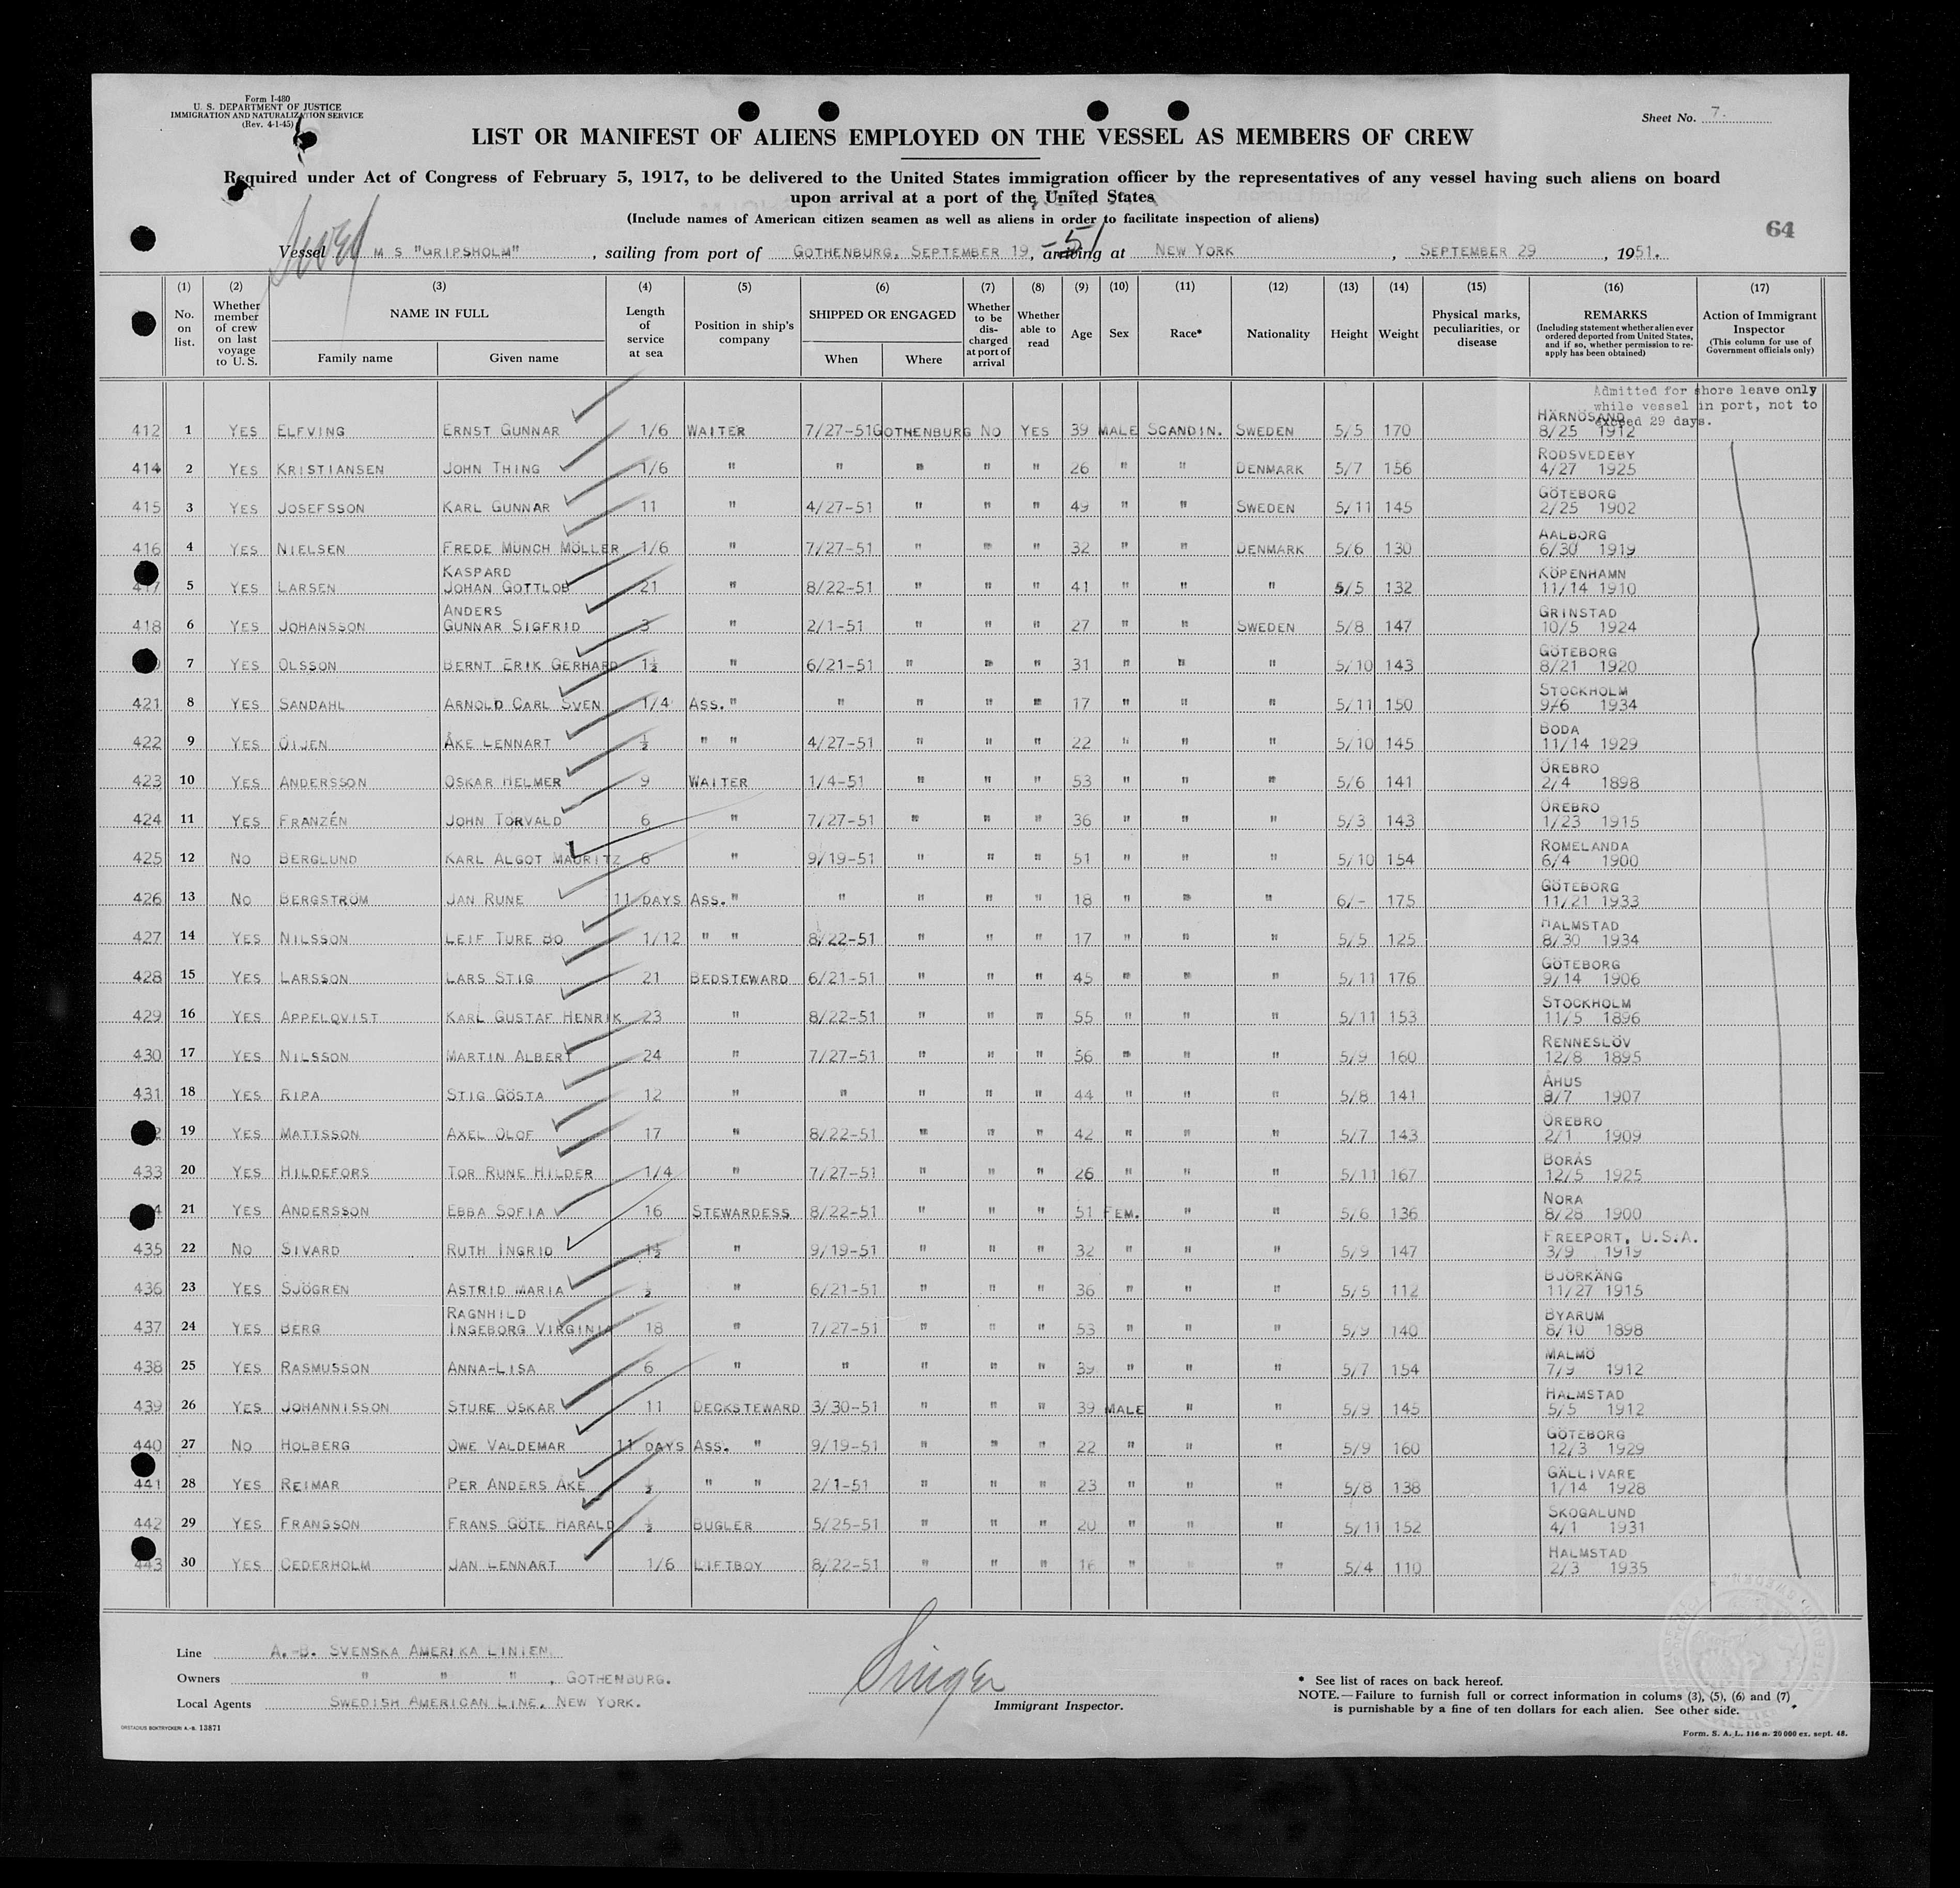 Form I-480
U. S. DEPARTMENT OF JUSTICE
IMMIGRATION AND NATURALIZATION SERVICE
(Rev. 4-1-45)
Sheet No. 7.
LIST OR MANIFEST OF ALIENS EMPLOYED ON THE VESSEL AS MEMBERS OF CREW
Required under Act of Congress of February 5, 1917, to be delivered to the United States immigration officer by the representatives of any vessel having such aliens on board
upon arrival at a port of the United States
(Include names of American citizen seamen as well as aliens in order to facilitate inspection of aliens)
64
Vessel M S "GRIPSHOLM", sailing from port of GOTHENBURG, SEPTEMBER 19, -51 arriving at NEW YORK, SEPTEMBER 29, 1951.
(1) No. on list. (2) Whether member of crew on last voyage to U. S. (3) NAME IN FULL Family name Given name (4) Length of service at sea (5) Position in ship's company (6) SHIPPED OR ENGAGED When Where (7) Whether to be discharged at port of arrival (8) Whether able to read (9) Age (10) Sex (11) Race* (12) Nationality (13) Height (14) Weight (15) Physical marks, peculiarities, or disease (16) REMARKS (Including statement whether alien ever ordered deported from United States, and if so, whether permission to reapply has been obtained) (17) Action of Immigrant Inspector (This column for use of Government officials only)
Admitted for shore leave only
while vessel in port, not to
exceed 29 days.
HÄRNÖSAND
412 1 YES ELFVING ERNST GUNNAR 1/6 WAITER 7/27-51 GOTHENBURG NO YES 39 MALE SCANDIN. SWEDEN 5/5 170 8/25 1912
RODSVEDEBY
414 2 YES KRISTIANSEN JOHN THING 1/6 " " " " " 26 " " DENMARK 5/7 156 4/27 1925
GÖTEBORG
415 3 YES JOSEFSSON KARL GUNNAR 11 " 4/27-51 " " " 49 " " SWEDEN 5/11 145 2/25 1902
AALBORG
416 4 YES NIELSEN FREDE MUNCH MÖLLER 1/6 " 7/27-51 " " " 32 " " DENMARK 5/6 130 6/30 1919
KASPARD KÖPENHAMN
417 5 YES LARSEN JOHAN GOTTLOB 21 " 8/22-51 " " " 41 " " " 5/5 132 11/14 1910
ANDERS GRINSTAD
418 6 YES JOHANSSON GUNNAR SIGFRID 3 " 2/1-51 " " " 27 " " SWEDEN 5/8 147 10/5 1924
GÖTEBORG
7 YES OLSSON BERNT ERIK GERHARD 1½ " 6/21-51 " " " 31 " " " 5/10 143 8/21 1920
STOCKHOLM
421 8 YES SANDAHL ARNOLD CARL SVEN 1/4 ASS. " " " " " 17 " " " 5/11 150 9/6 1934
BODA
422 9 YES ÖIJEN ÅKE LENNART ½ " " 4/27-51 " " " 22 " " " 5/10 145 11/14 1929
ÖREBRO
423 10 YES ANDERSSON OSKAR HELMER 9 WAITER 1/4-51 " " " 53 " " " 5/6 141 2/4 1898
ÖREBRO
424 11 YES FRANZÉN JOHN TORVALD 6 " 7/27-51 " " " 36 " " " 5/3 143 1/23 1915
ROMELANDA
425 12 NO BERGLUND KARL ALGOT MAURITZ 6 " 9/19-51 " " " 51 " " " 5/10 154 6/4 1900
GÖTEBORG
426 13 NO BERGSTRÖM JAN RUNE 11 DAYS ASS. " " " " " 18 " " " 6/- 175 11/21 1933
HALMSTAD
427 14 YES NILSSON LEIF TURE BO 1/12 " " 8/22-51 " " " 17 " " " 5/5 125 8/30 1934
GÖTEBORG
428 15 YES LARSSON LARS STIG 21 BEDSTEWARD 6/21-51 " " " 45 " " " 5/11 176 9/14 1906
STOCKHOLM
429 16 YES APPELQVIST KARL GUSTAF HENRIK 23 " 8/22-51 " " " 55 " " " 5/11 153 11/5 1896
RENNESLÖV
430 17 YES NILSSON MARTIN ALBERT 24 " 7/27-51 " " " 56 " " " 5/9 160 12/8 1895
ÅHUS
431 18 YES RIPA STIG GÖSTA 12 " " " " " 44 " " " 5/8 141 8/7 1907
ÖREBRO
19 YES MATTSSON AXEL OLOF 17 " 8/22-51 " " " 42 " " " 5/7 143 2/1 1909
BORÅS
433 20 YES HILDEFORS TOR RUNE HILDER 1/4 " 7/27-51 " " " 26 " " " 5/11 167 12/5 1925
NORA
4 21 YES ANDERSSON EBBA SOFIA 16 STEWARDESS 8/22-51 " " " 51 FEM. " " 5/6 136 8/28 1900
FREEPORT, U.S.A.
435 22 NO SIVARD RUTH INGRID 1½ " 9/19-51 " " " 32 " " " 5/9 147 3/9 1919
BJÖRKÄNG
436 23 YES SJÖGREN ASTRID MARIA ½ " 6/21-51 " " " 36 " " " 5/5 112 11/27 1915
RAGNHILD BYARUM
437 24 YES BERG INGEBORG VIRGINIA 18 " 7/27-51 " " " 53 " " " 5/9 140 8/10 1898
MALMÖ
438 25 YES RASMUSSON ANNA-LISA 6 " " " " " 39 " " " 5/7 154 7/9 1912
HALMSTAD
439 26 YES JOHANNISSON STURE OSKAR 11 DECKSTEWARD 3/30-51 " " " 39 MALE " " 5/9 145 5/5 1912
GÖTEBORG
440 27 NO HOLBERG OWE VALDEMAR 11 DAYS ASS. " 9/19-51 " " " 22 " " " 5/9 160 12/3 1929
GÄLLIVARE
441 28 YES REIMAR PER ANDERS ÅKE ½ " " 2/1-51 " " " 23 " " " 5/8 138 1/14 1928
SKOGALUND
442 29 YES FRANSSON FRANS GÖTE HARALD ½ BUGLER 5/25-51 " " " 20 " " " 5/11 152 4/1 1931
HALMSTAD
443 30 YES CEDERHOLM JAN LENNART 1/6 LIFTBOY 8/22-51 " " " 16 " " " 5/4 110 2/3 1935
Line A.-B. SVENSKA AMERIKA LINIEN.
Owners " " ", GOTHENBURG.
Local Agents SWEDISH AMERICAN LINE, NEW YORK.
ORSTADIUS BOKTRYCKERI A.-B. 13871
Singer
Immigrant Inspector.
* See list of races on back hereof.
NOTE.—Failure to furnish full or correct information in colums (3), (5), (6) and (7)
is punishable by a fine of ten dollars for each alien. See other side.
Form. S. A. L. 116 n. 20 000 ex. sept. 48.